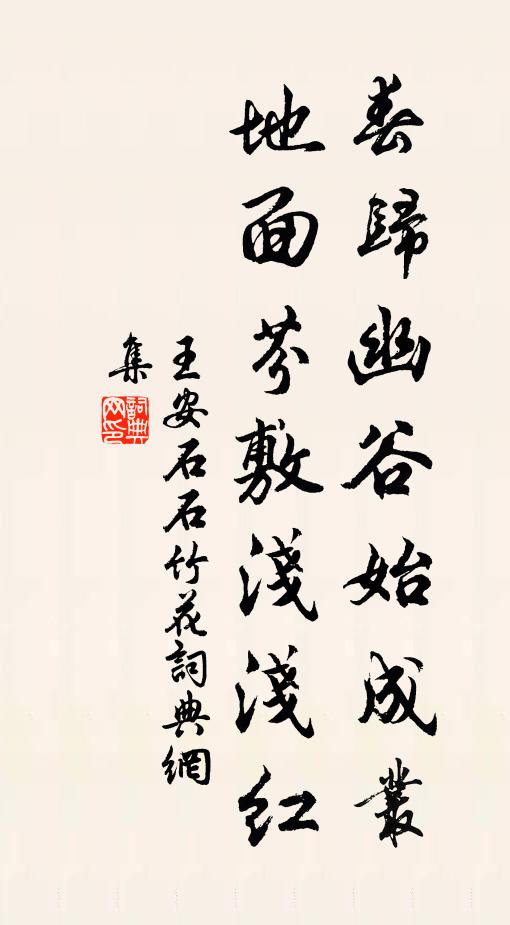 春歸幽谷始成叢
地面芬敷淺淺紅
王安石石竹花詞典網
集
詞典網印